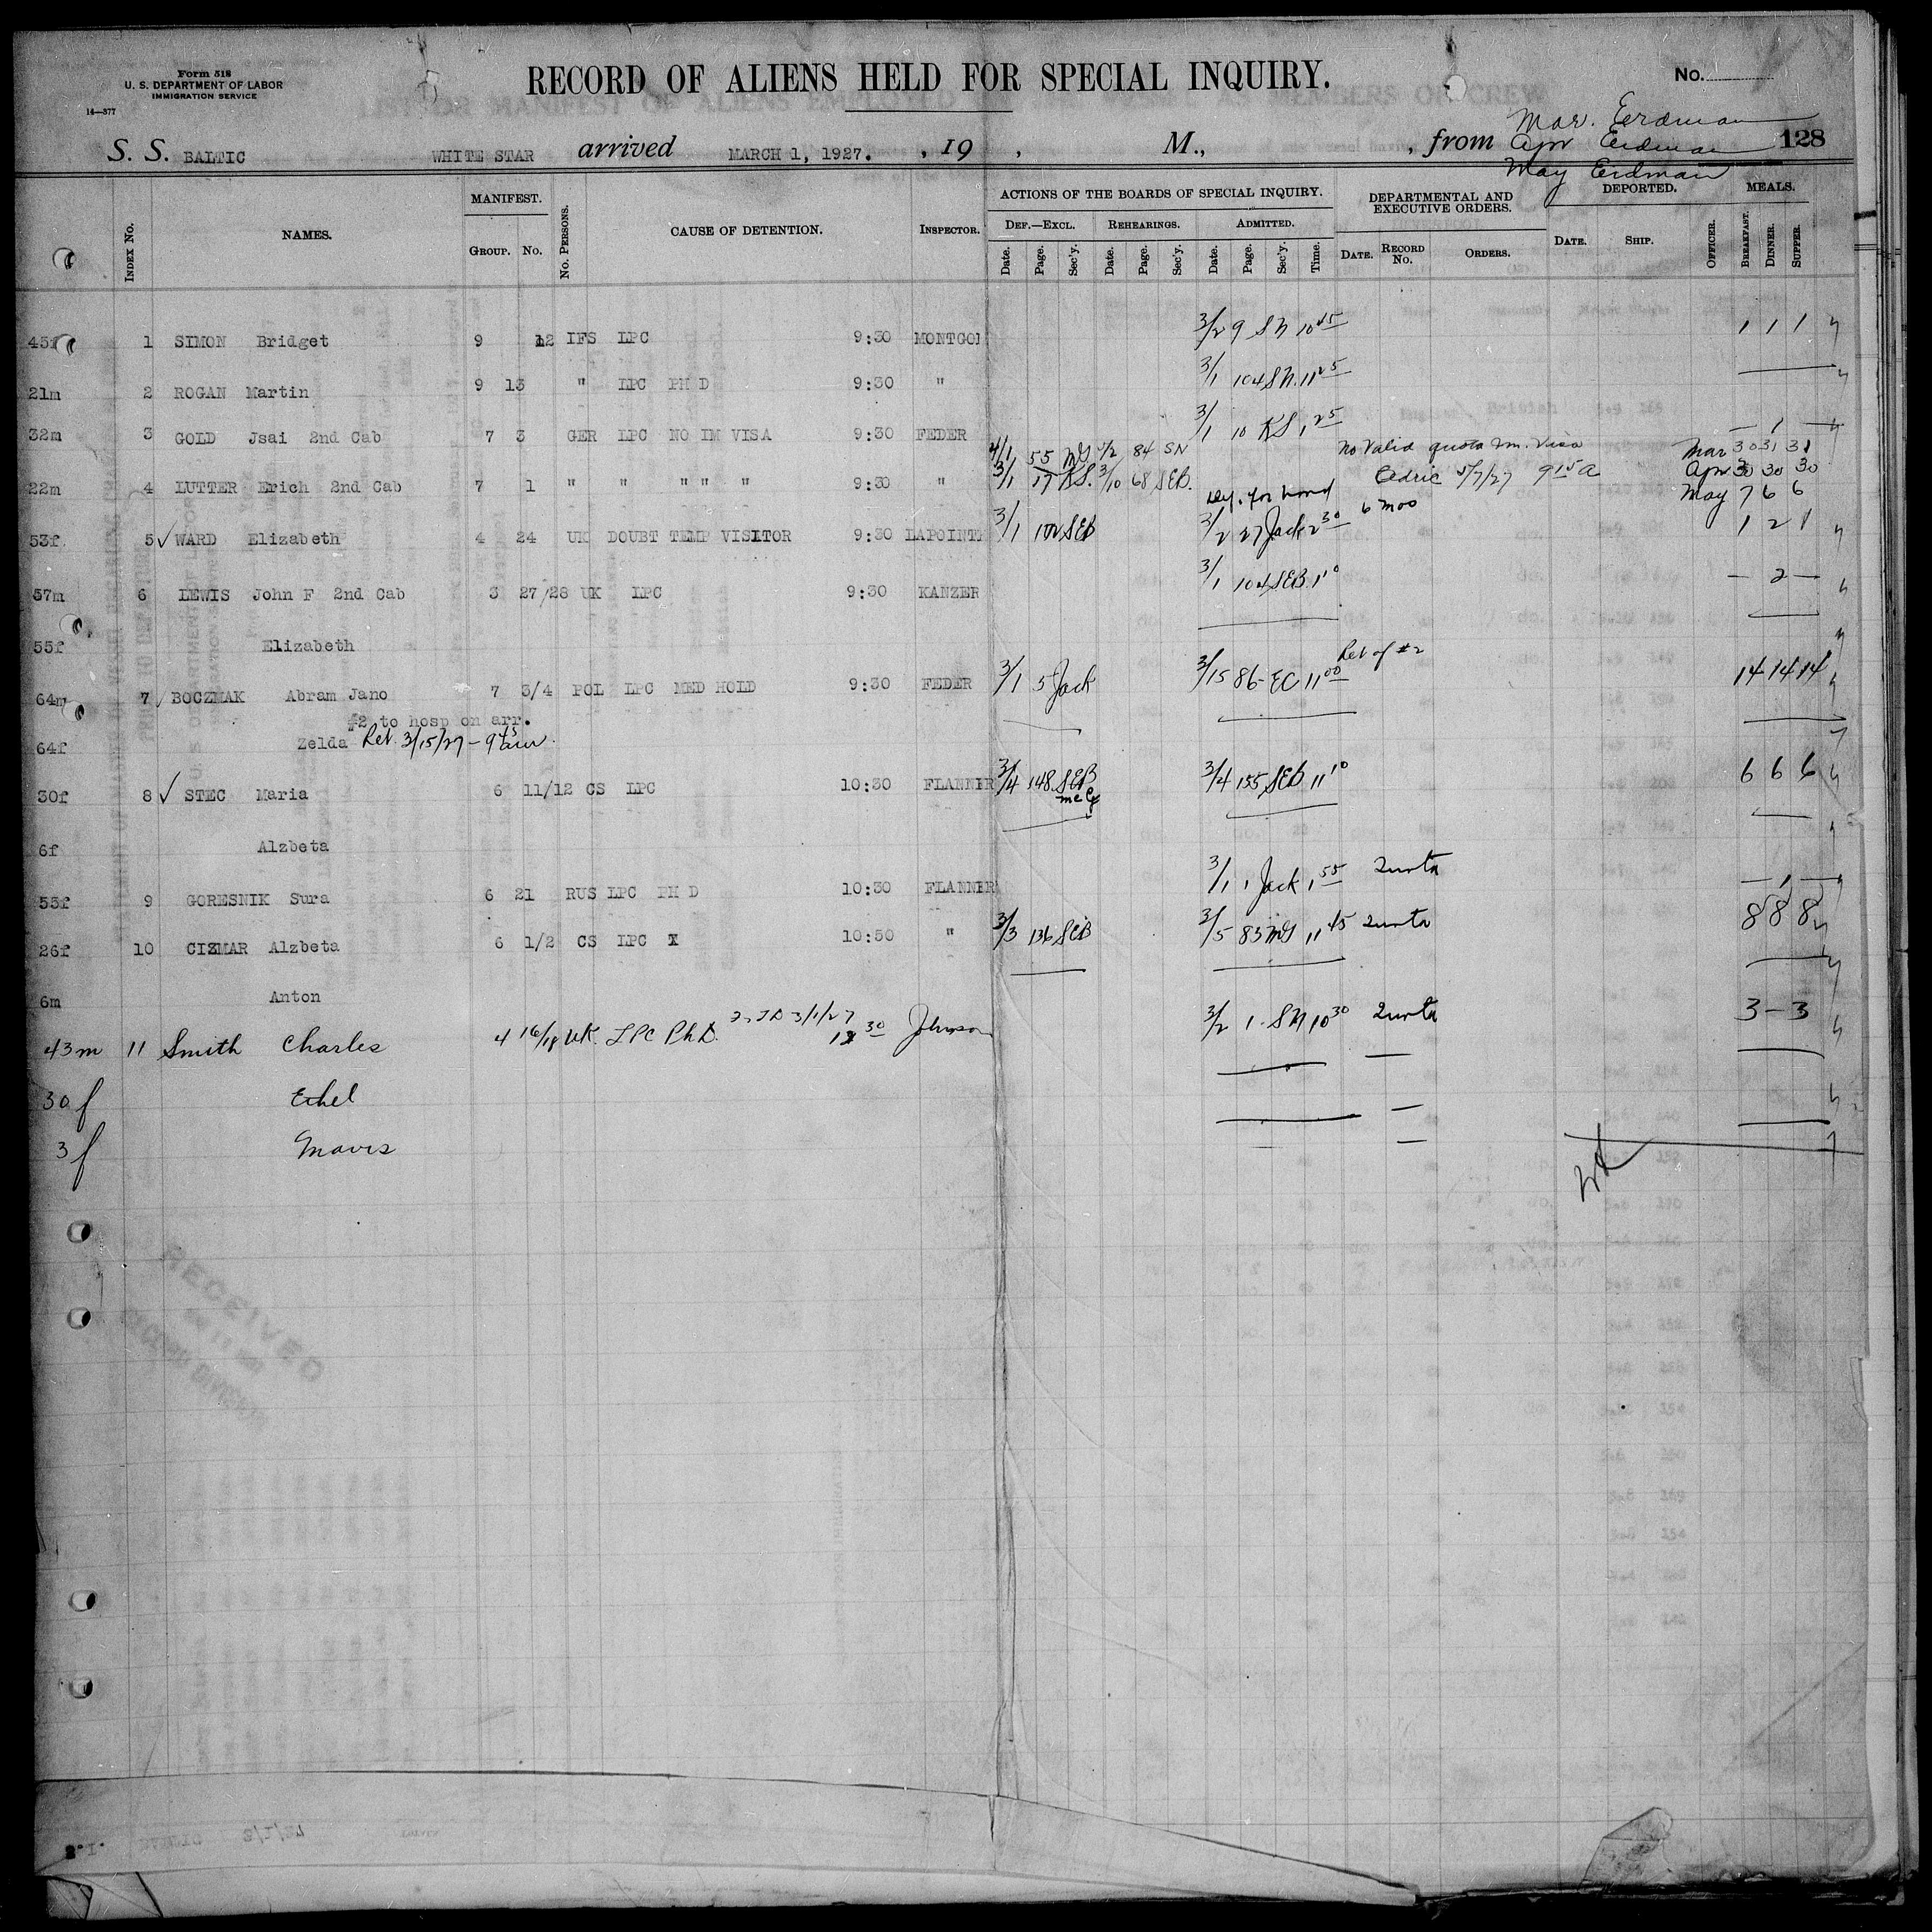 Form 518
U. S. DEPARTMENT OF LABOR
IMMIGRATION SERVICE
14—577
RECORD OF ALIENS HELD FOR SPECIAL INQUIRY.
No.
Mar. Erdman
S. S. BALTIC WHITE STAR arrived MARCH 1, 1927. , 19 , M., , from Apr Erdman 128
May Erdman
MANIFEST. ACTIONS OF THE BOARDS OF SPECIAL INQUIRY. DEPARTMENTAL AND EXECUTIVE ORDERS. DEPORTED. MEALS.
Index No. NAMES. GROUP. NO. No. Persons. CAUSE OF DETENTION. INSPECTOR. DEF.—EXCL. REHEARINGS. ADMITTED.
Date. Page. Sec'y. Date. Page. Sec'y. Date. Page. Sec'y. Time. DATE. RECORD NO. ORDERS. DATE. SHIP. OFFICER. BREAKFAST. DINNER. SUPPER.
45f 1 SIMON Bridget 9 12 IFS LPC 9:30 MONTGOM 3/2 9 SN 10 45 1 1 1
21m 2 ROGAN Martin 9 13 " LPC PH D 9:30 " 3/1 104 SN 11 25
32m 3 GOLD Jsai 2nd Cab 7 3 GER LPC NO IM VISA 9:30 FEDER 3/1 10 KS 1 25 — 1 —
4/1 55 MG 4/2 84 SN No Valid quota Im. Visa Mar 30 31 31
22m 4 LUTTER Erich 2nd Cab 7 1 " " " " " " 9:30 " 3/1 17 KS. 3/10 68 SEB. Cedric 5/7/27 9 15 A Apr 30 30 30
May 7 6 6
for bond 6 mos
53f 5 ✓ WARD Elizabeth 4 24 UK DOUBT TEMP VISITOR 9:30 LAPOINTE 3/1 102 SEB 3/2 27 Jack 2 30 1 2 1
57m 6 LEWIS John F 2nd Cab 3 27/28 UK LPC 9:30 KANZER 3/1 104 SEB 1 10 — 2 —
55f Elizabeth
Ret of #2
64m 7 ✓ BOCZMAK Abram Jano 7 3/4 POL LPC MED HOLD 9:30 FEDER 3/1 5 Jack 3/15 86 EC 11 00 14 14 14
#2 to hosp on arr.
64f Zelda Ret. 3/15/27 - 9 45 am
30f 8 ✓ STEC Maria 6 11/12 CS LPC 10:30 FLANNER 3/4 148 SEB 3/4 155 SEB 11 10 6 6 6
6f Alzbeta
55f 9 GORESNIK Sura 6 21 RUS LPC PH D 10:30 FLANNER 3/1 1 Jack 1 55 — 1 —
26f 10 CIZMAR Alzbeta 6 1/2 CS LPC 10:50 " 3/3 136 SEB 3/5 83 MG 11 45 8 8 8
6m Anton
43m 11 Smith Charles 4 16/18 UK. LPC Ph D. 3/1/27 12 30 Johnson 3/2 1 SN 10 30 3 — 3
30f Ethel
3f Mavis
RECEIVED
S.I. BALTIC 3/1/27